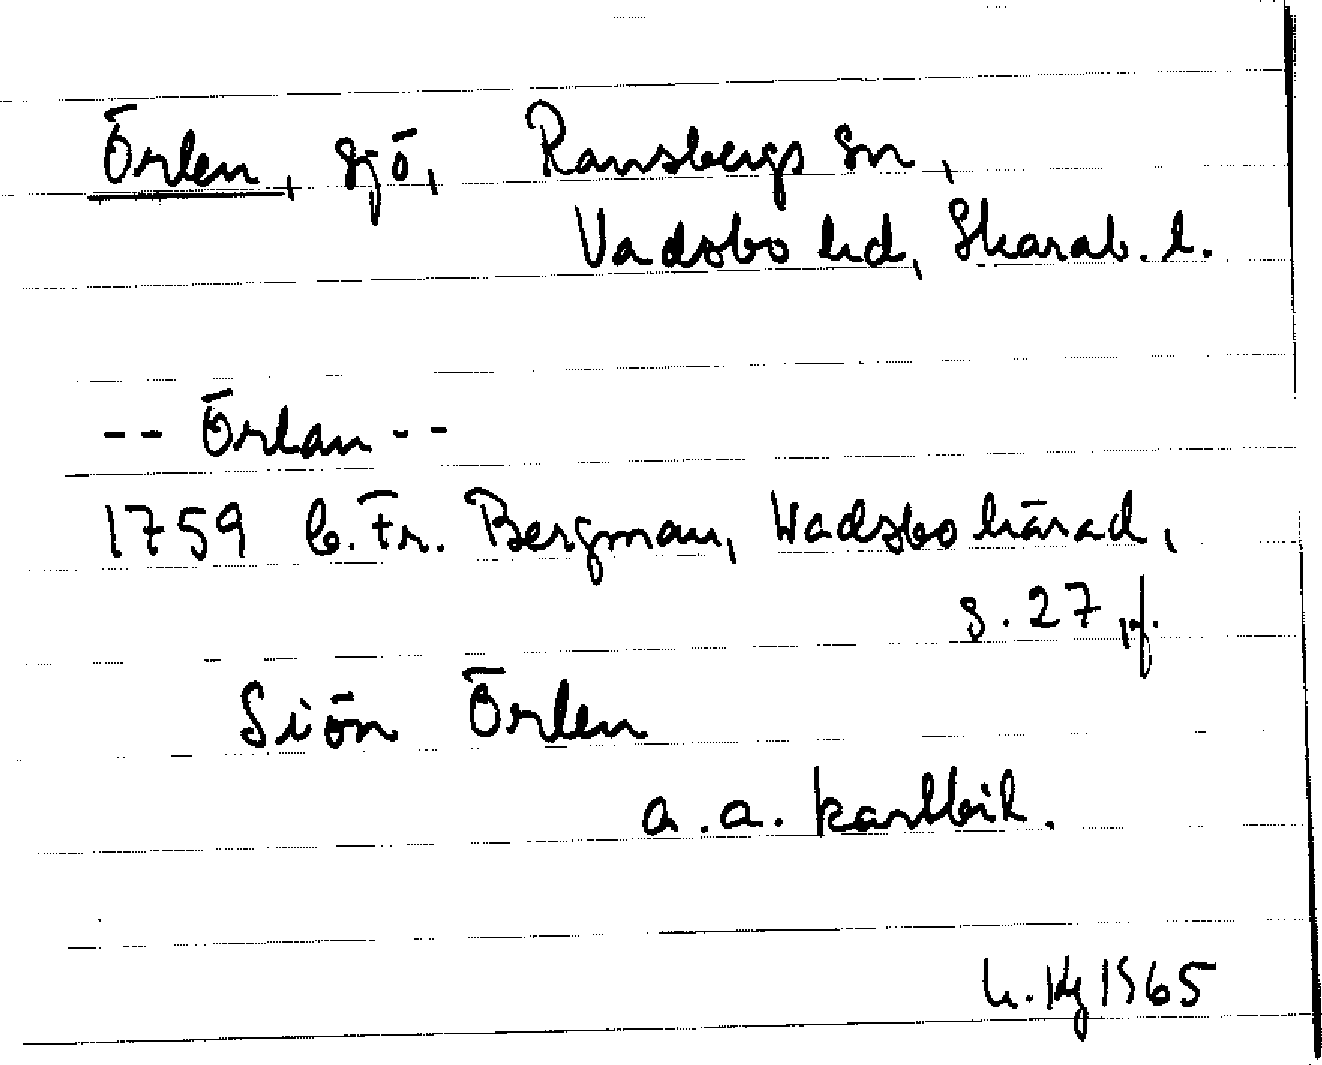 Örlen, sjö, Ransbergs sn,
Vadsbo hd, Skarab. l.
-- Örlan --
1759 C. Fr. Bergman, Wadsbo härad,
s. 27 pf.
Siön Örlen
a. a. kartbil.
L. Kg 1965